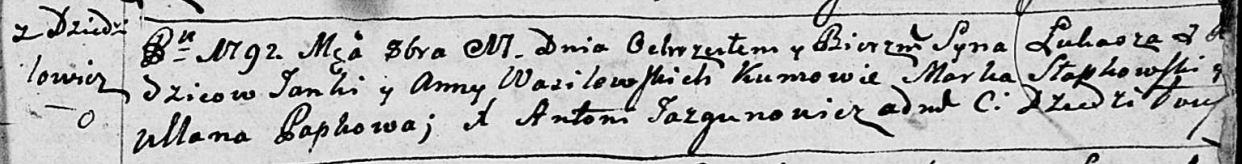 z Dziedzi
łowicz
Rku 1792. Mca 8bra 17. Dnia Ochrzciłem y Bierzm Syna Łukasza z Ro
dzicow Janki y Anny Wasilewskich Kumowie Marka Słapkowski y
Ullana Papkowa; X Antoni Jazgunowicz adm C: Dziedziłowi